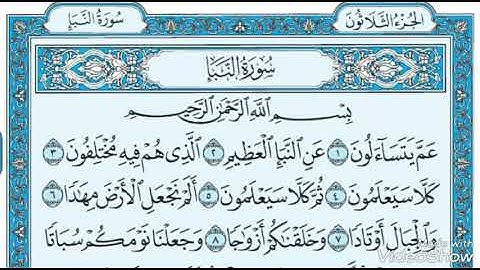 سُورَةُ النَّبَإِ
الجُزْءُ الثَّلَاثُونَ
سُورَةُ النَّبَإِ
بِسْمِ اللَّهِ الرَّحْمَٰنِ الرَّحِيمِ
عَمَّ يَتَسَآءَلُونَ ١ عَنِ النَّبَإِ الْعَظِيمِ ٢ الَّذِى هُمْ فِيهِ مُخْتَلِفُونَ ٣
كَلَّا سَيَعْلَمُونَ ٤ ثُمَّ كَلَّا سَيَعْلَمُونَ ٥ أَلَمْ نَجْعَلِ الْأَرْضَ مِهَٰدًا ٦
وَالْجِبَالَ أَوْتَادًا ٧ وَخَلَقْنَاكُمْ أَزْوَاجًا ٨ وَجَعَلْنَا نَوْمَكُمْ سُبَاتًا
Made with
VideoShow